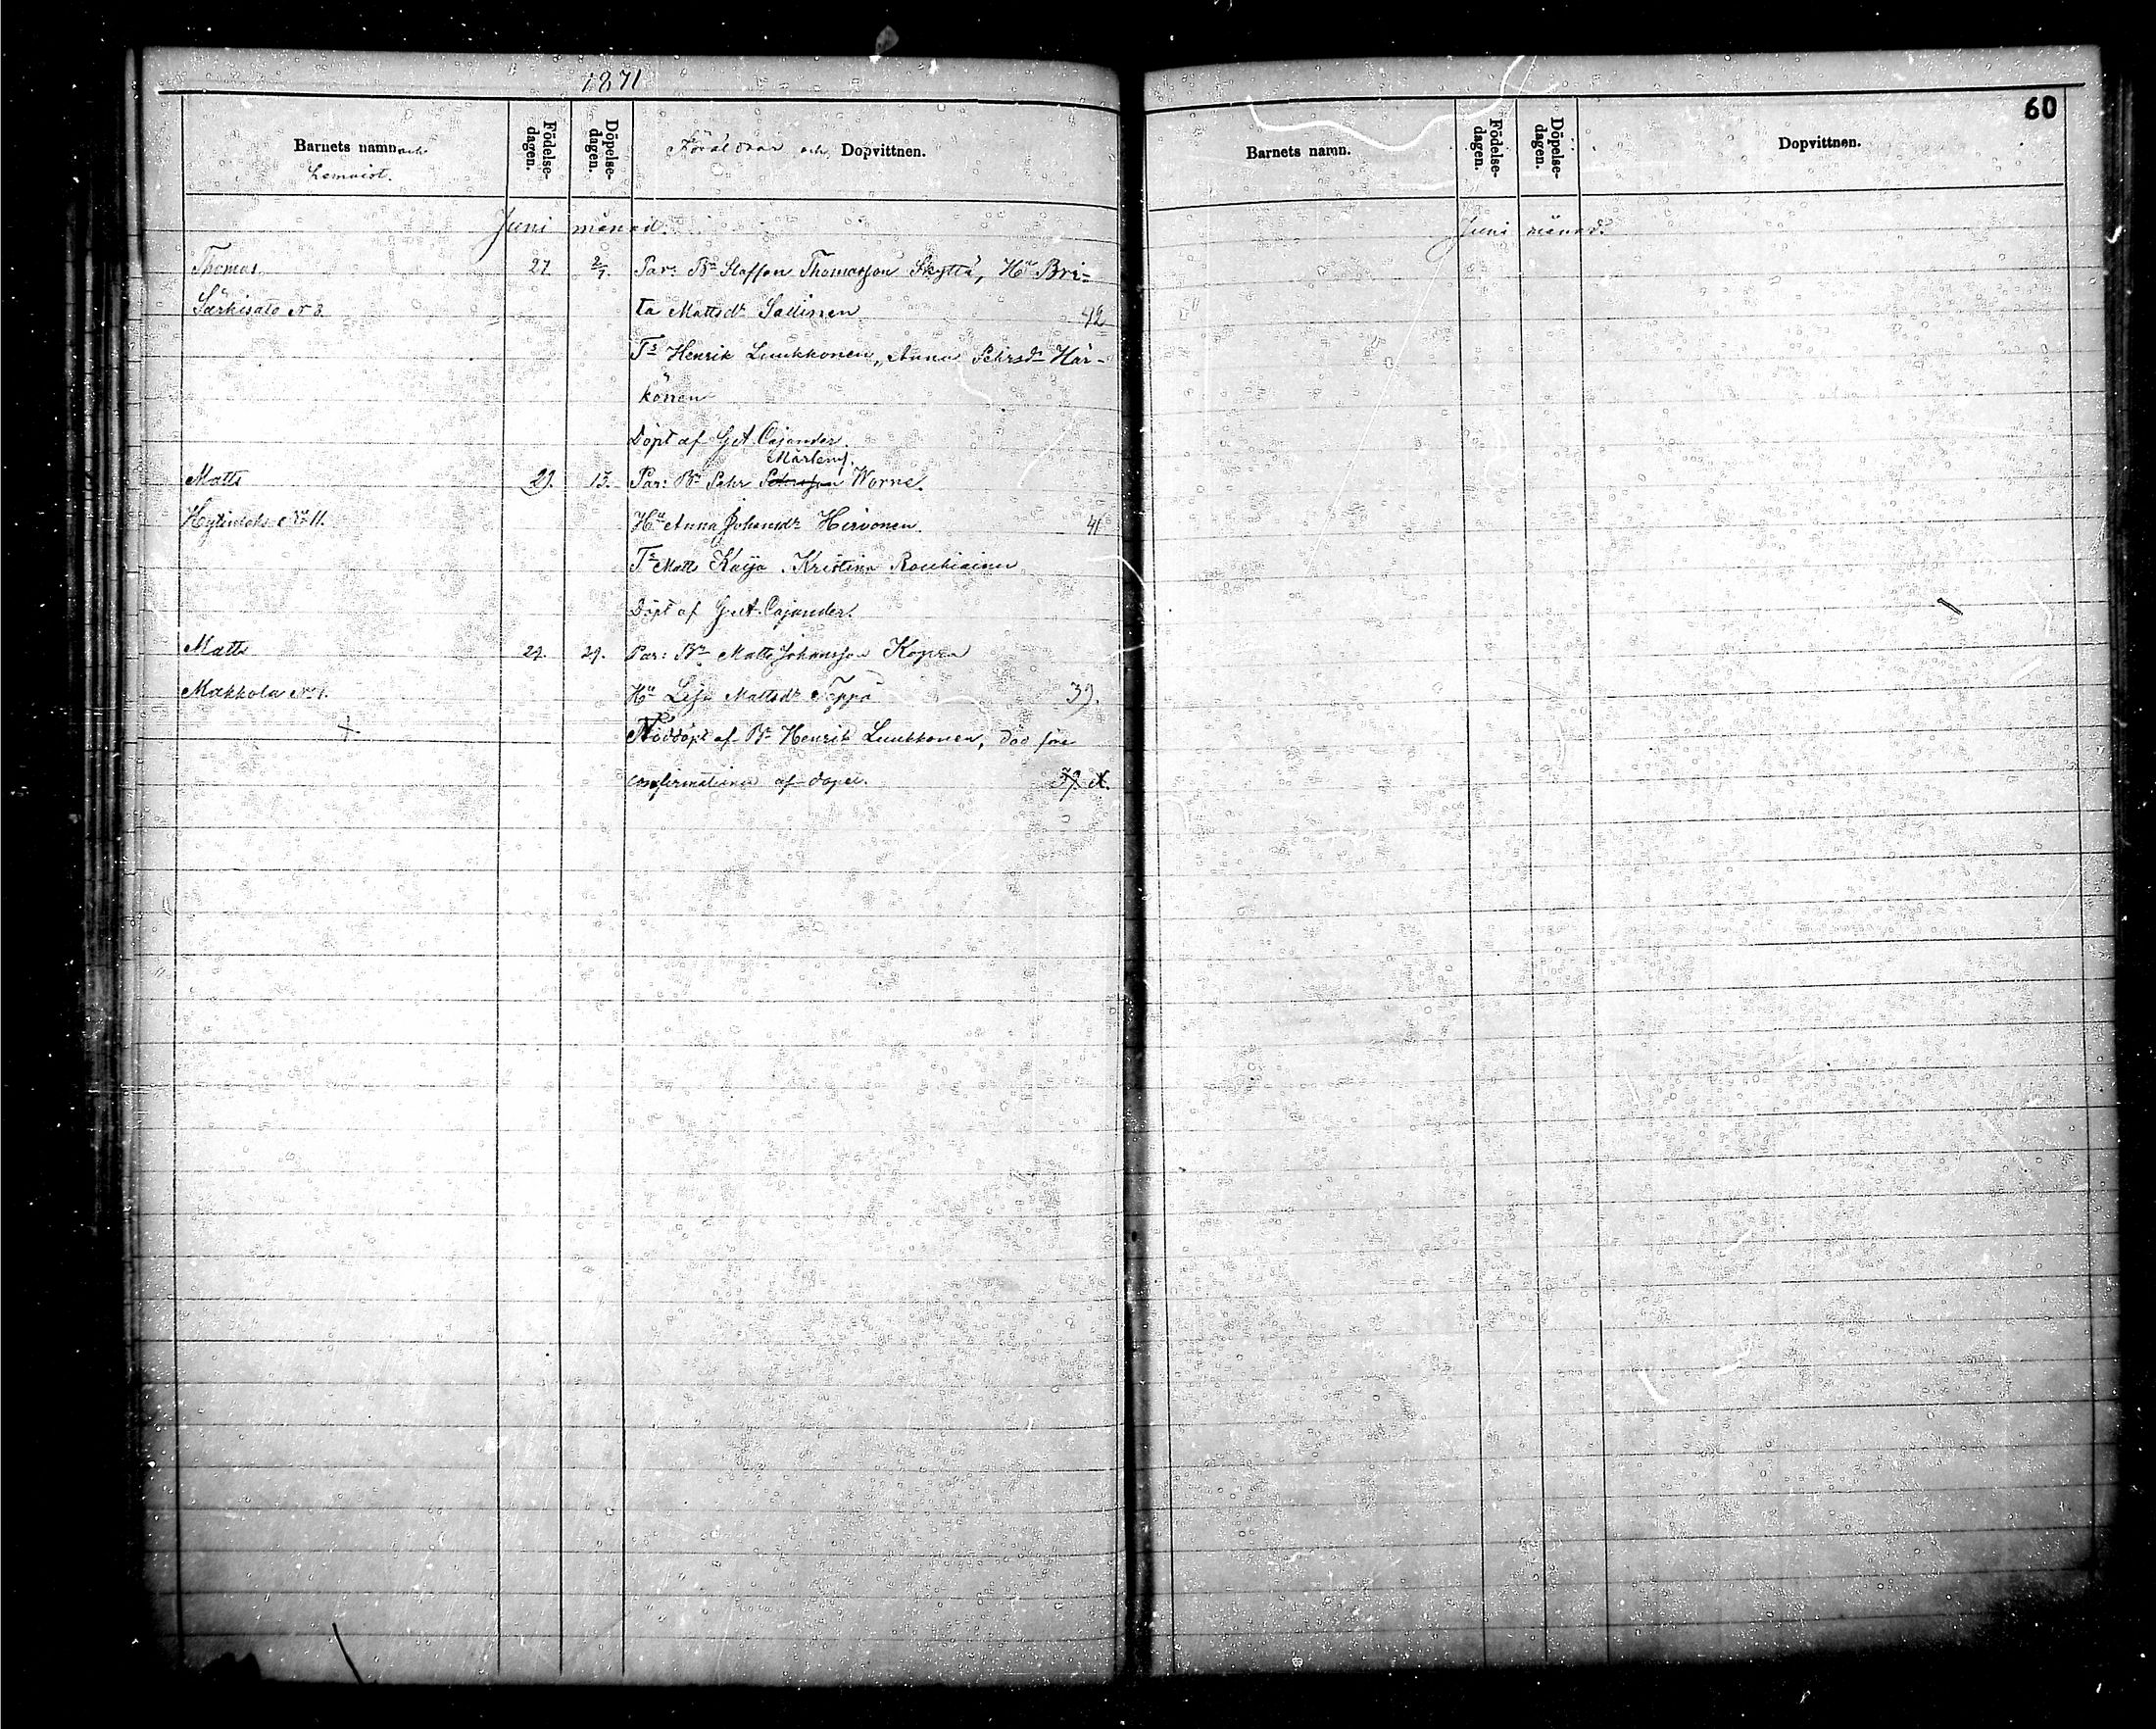 1871
60
Barnets namn och
hemvist.
Födelse-
dagen.
Döpelse-
dagen.
Föräldrar och Dopvittnen.
Juni månad.
Thomas 27. 2/7. Par: Bn Staffan Thomasson Skyttä, Hu Bri-
Särkisalo No 3. ta Mattsdr Sallinen 42
Ts Henrik Luukkonen, Anna Pehrsdr Här-
könen
Döpt af G. A. Cajander.
Mårtens.
Matts 29. 13. Par: Bn Pehr Worne.
No 11. Hu Anna Johansdr Hirvonen 41
Ts Matts Kaija, Kristina Rouhiainen
Döpt af G. A. Cajander.
Matts 29. 29. Par: Bn Matts Johansson Kopra
Makkola No 1. Hu Lisa Mattsdr 39.
+ Nöddöpt af Bn Henrik Luukkonen, död före
confirmationen af dopet.
Barnets namn.
Födelse-
dagen.
Döpelse-
dagen.
Dopvittnen.
Juni månad.